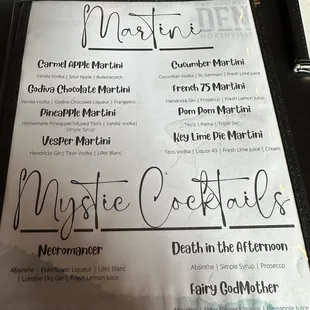 Martini
Carmel Apple Martini
Vanilla Vodka | Sour Apple | Butterscotch
Godiva Chocolate Martini
Vanilla Vodka | Godiva Chocolate Liqueur | Frangelico
Pineapple Martini
Homemade Pineapple Infused Tito's | Vanilla Vodka|
Simple Syrup
Vesper Martini
Hendricks Gin | Titos Vodka | Lillet Blanc
Cucumber Martini
Cucumber Vodka | St. Germain | Fresh Lime Juice
French 75 Martini
Hendricks Gin | Prosecco | Fresh Lemon Juice
Pom Pom Martini
Tito's | Pama | Triple Sec
Key Lime Pie Martini
Titos Vodka | Liquor 43 | Fresh Lime Juice | Cream
Mystic Cocktails
Necromancer
Absinthe | Elderflower Liqueur | Lillet Blanc
| London Dry Gin | Fresh Lemon Juice
Death in the Afternoon
Absinthe | Simple Syrup | Prosecco
Fairy GodMother
Elder Flower Liqueur | Pineapple Juice